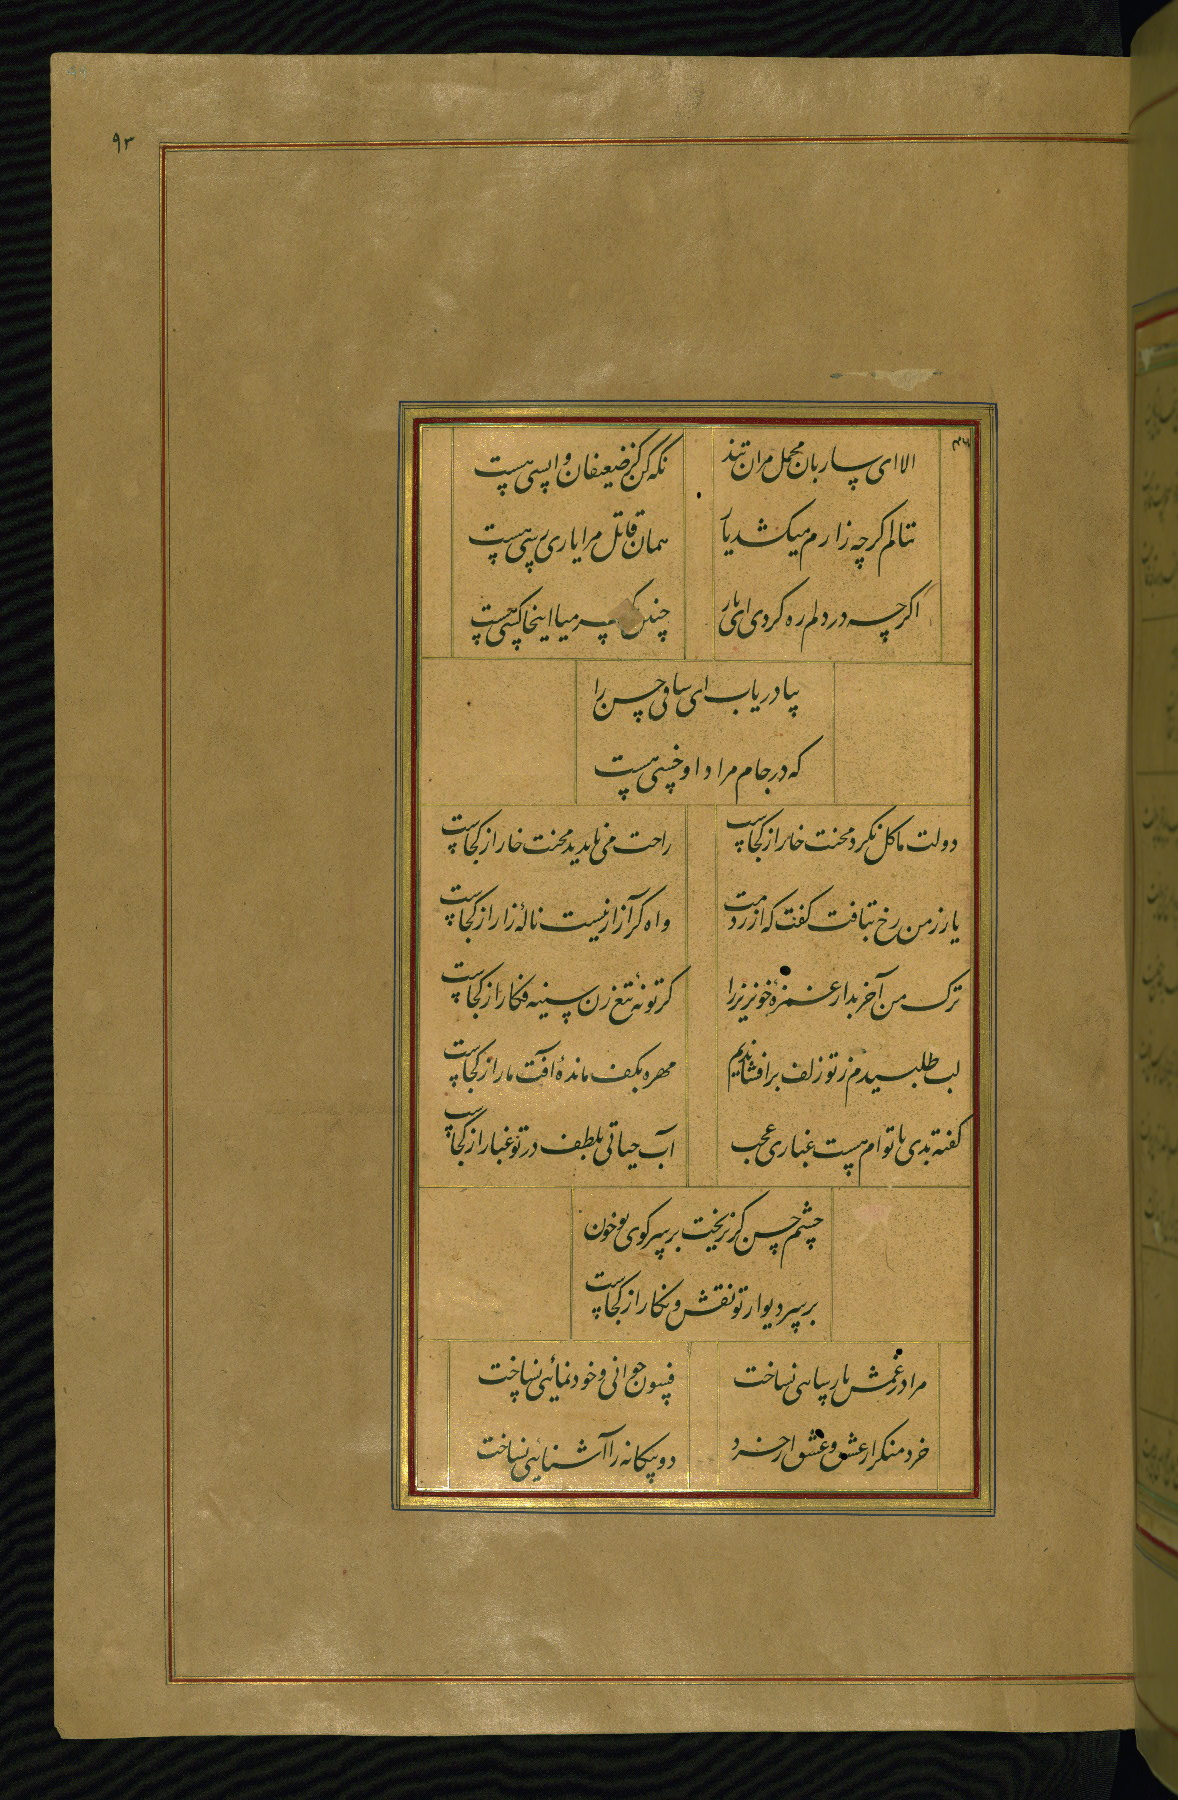 ۹۳
الا ای ساربان محمل مران تند
نکه کن کز ضعیفان واپسی هست
ننالم اکرچه زارم میکشد یار
همان قاتل مرا یاری رسی هست
اکرچه در دلم ره کردی ای یار
چنین میا اینجا کسی هست
بیا دریاب ای ساقی حسن را
که در جام مراد او خسی هست
دولت ما کل نکرد محنت خار از کجاست
راحت می نادید محنت خار از کجاست
یار ز من رخ بتافت کفت که از ردمت
واه کر آزار نیست نالهٔ زار از کجاست
ترک من آخر بدار غمزهٔ خونریز را
کر تو نهٔ تیغ زن سینه فکار از کجاست
لب طلبیدم ز تو زلف برافشاندیم
مهره بکف ماندهٔ آفت مار از کجاست
کفته بدی با توام هست غباری عجب
آب حیاتی بلطف در تو غبار از کجاست
چشم حسن کر نریخت بر سر کوی تو خون
بر سر دیوار تو نقش و نکار از کجاست
مرا در غمش پارسایی نساخت
فسون جوانی و خودنمائی نساخت
خرد منکر از عشق و عشق از خرد
دو بیکانه را آشنایی نساخت